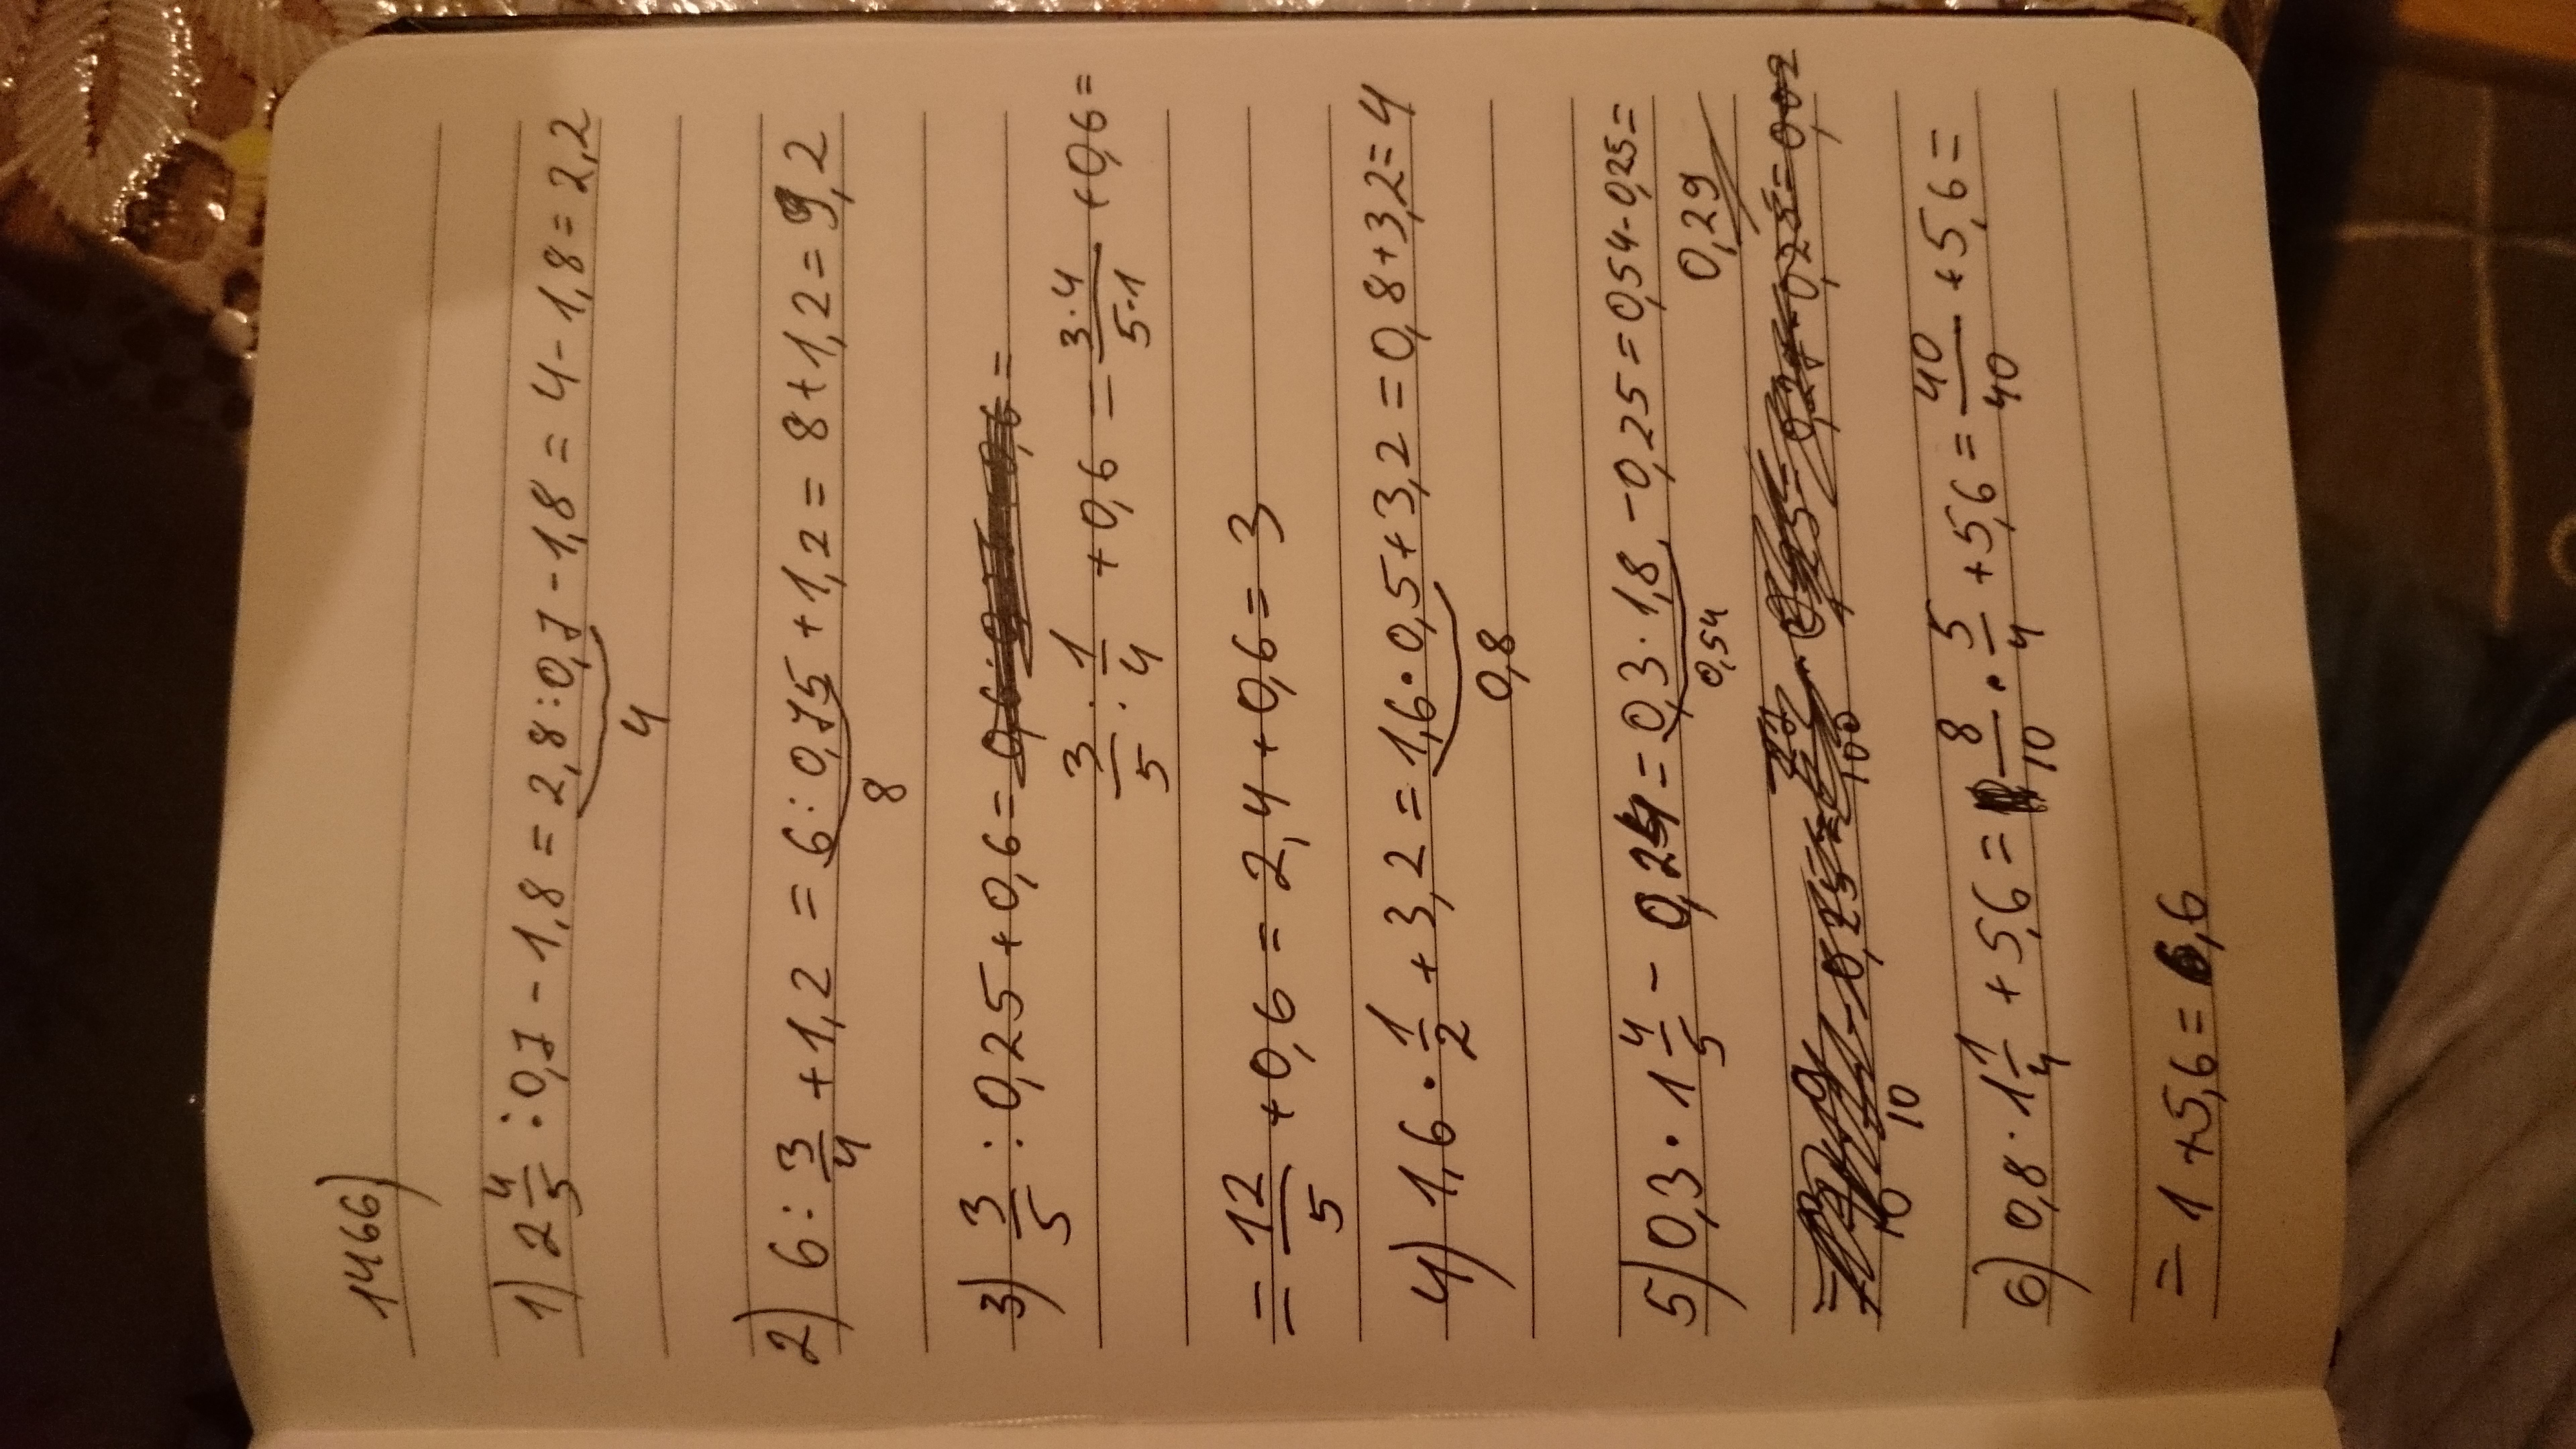 1466)
1) 2 4/5 : 0,7 - 1,8 = 2,8 : 0,7 - 1,8 = 4 - 1,8 = 2,2
4
2) 6 : 3/4 + 1,2 = 6 : 0,75 + 1,2 = 8 + 1,2 = 9,2
8
3) 3/5 : 0,25 + 0,6 =
3/5 : 1/4 + 0,6 = 3·4/5·1 + 0,6 =
= 12/5 + 0,6 = 2,4 + 0,6 = 3
4) 1,6 · 1/2 + 3,2 = 1,6 · 0,5 + 3,2 = 0,8 + 3,2 = 4
0,8
5) 0,3 · 1 4/5 - 0,25 = 0,3 · 1,8 - 0,25 = 0,54 - 0,25 =
0,54
0,29
6) 0,8 · 1 1/4 + 5,6 = 8/10 · 5/4 + 5,6 = 40/40 + 5,6 =
= 1 + 5,6 = 6,6